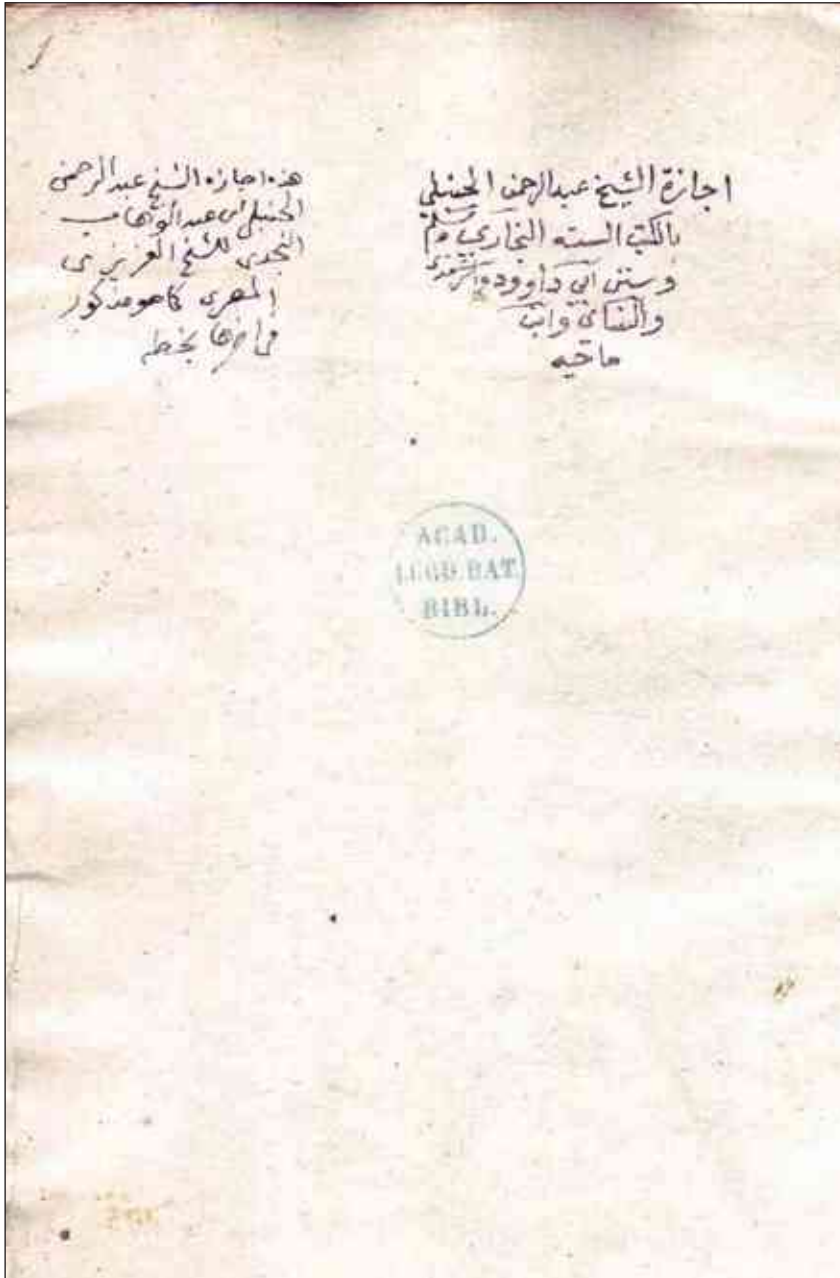 اجازة الشيخ عبدالرحمن الحنبلي
بالكتب السته البخاري ومسلم
وسنن ابي داوود والترمذي
والنسائي وابن
ماجيه
هذه اجازه الشيخ عبدالرحمن
الحنبلي ابن عبدالوهاب
النجدي للشيخ العزيزي
المصري كما هو مذكور
في اخرها بخطه
ACAD.
LUGD. BAT.
BIBL.